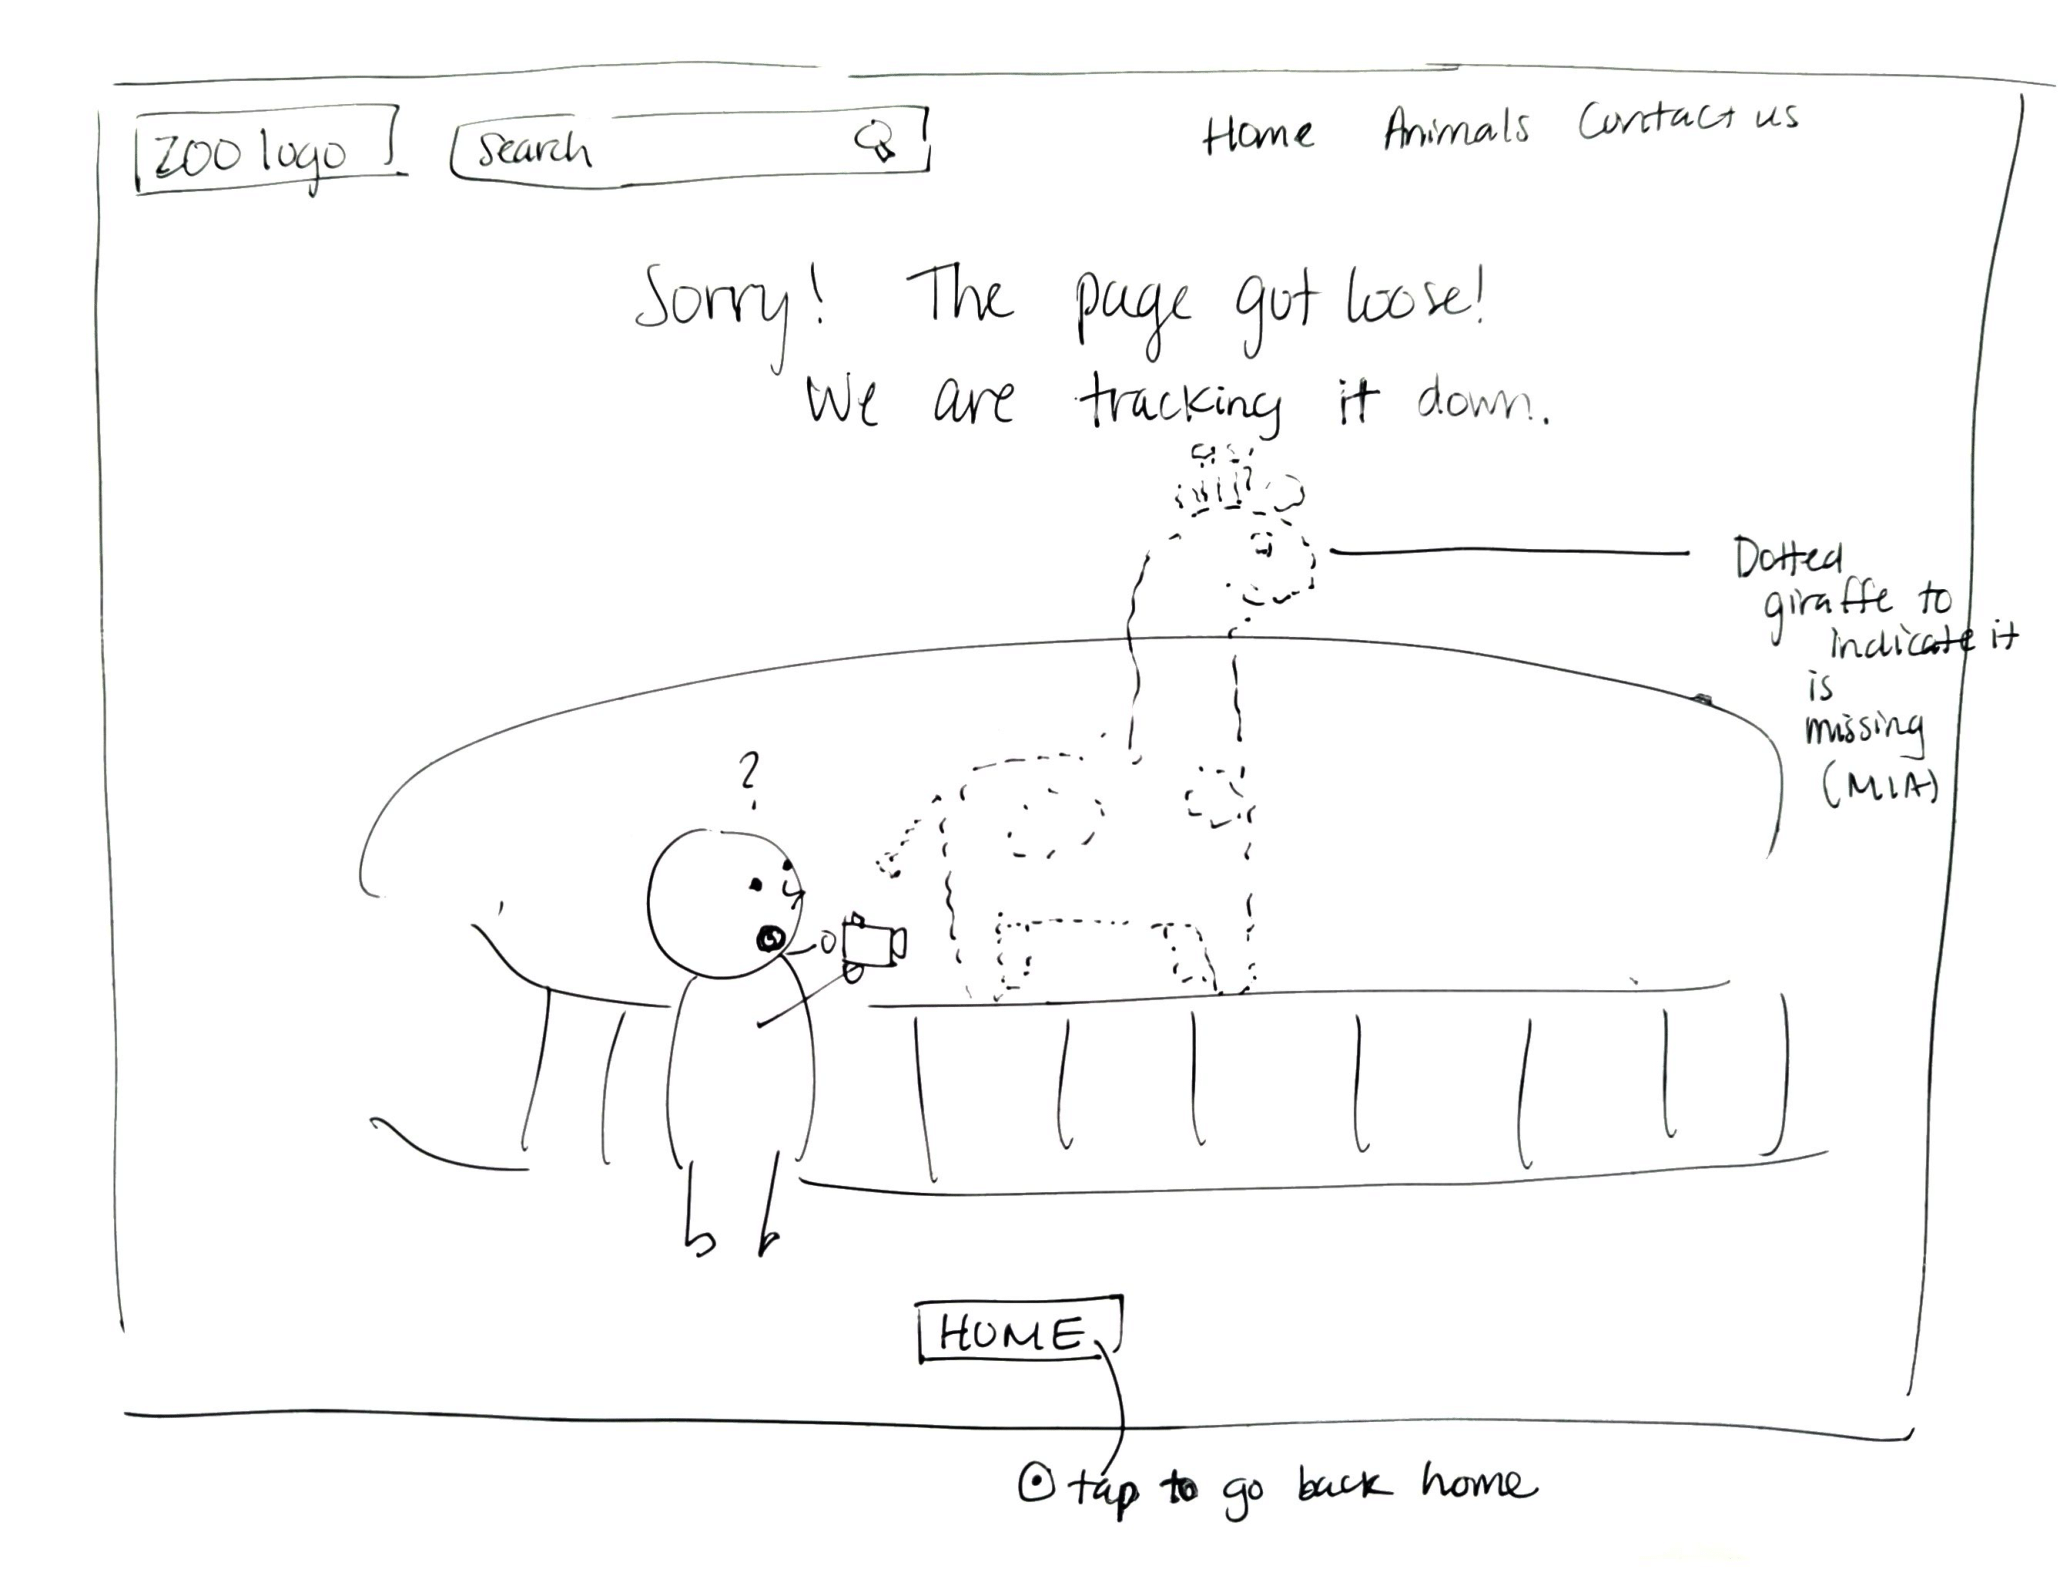 ZOO logo
Search
Home Animals Contact us
Sorry! The page got loose!
We are tracking it down.
Dotted
giraffe to
indicate it
is
missing
(MIA)
?
HOME
tap to go back home